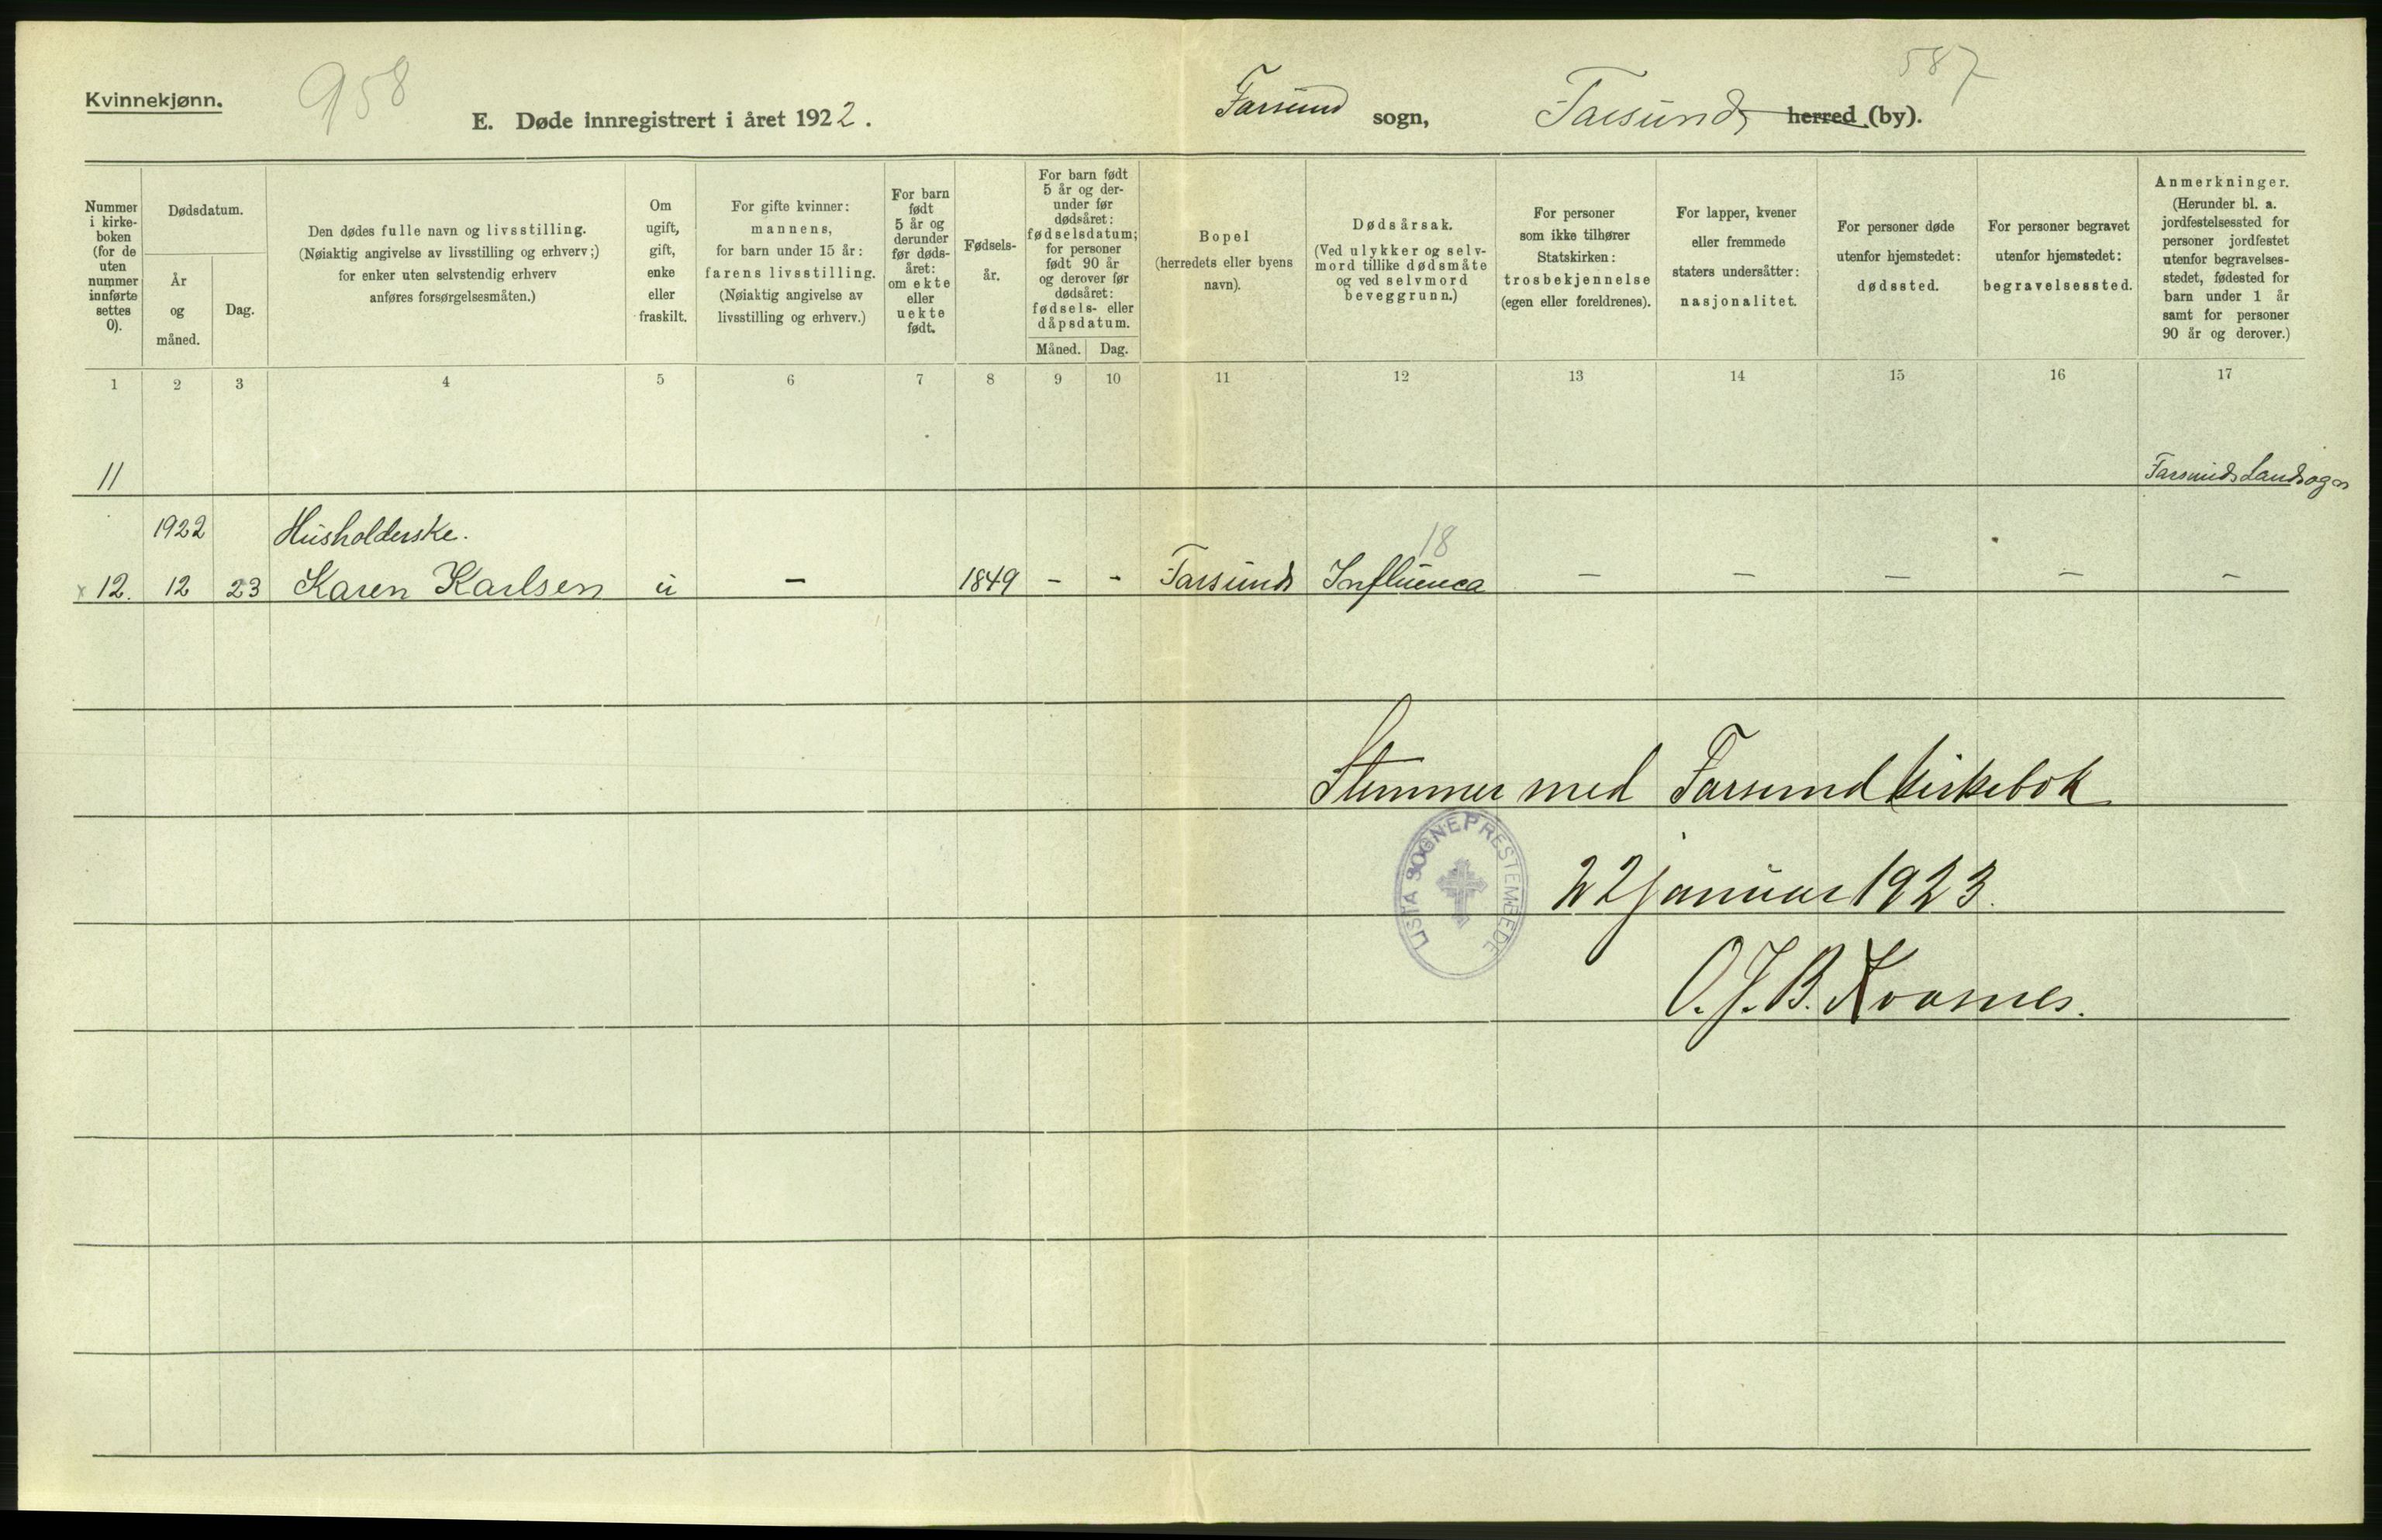 Kvinnekjønn.
958
587
E. Døde innregistrert i året 1922.
Farsund sogn, Farsund herred (by).
Nummer i kirke-boken (for de uten nummer innførte settes 0).
Dødsdatum.
År og måned.
Dag.
Den dødes fulle navn og livsstilling.
(Nøiaktig angivelse av livsstilling og erhverv;)
for enker uten selvstendig erhverv
anføres forsørgelsesmåten.)
Om
ugift,
gift,
enke
eller
fraskilt.
For gifte kvinner:
mannens,
for barn under 15 år:
farens livsstilling.
(Nøiaktig angivelse av
livsstilling og erhverv.)
For barn
født
5 år og
derunder
før døds-
året:
om ekte
eller
uekte
født.
Fødsels-
år.
For barn født
5 år og der-
under før
dødsåret:
fødselsdatum;
for personer
født 90 år
og derover før
dødsåret:
fødsels- eller
dåpsdatum.
Måned. Dag.
Bopel
(herredets eller byens
navn).
Dødsårsak.
(Ved ulykker og selv-
mord tillike dødsmåte
og ved selvmord
beveggrunn.)
For personer
som ikke tilhører
Statskirken:
trosbekjennelse
(egen eller foreldrenes).
For lapper, kvener
eller fremmede
staters undersåtter:
nasjonalitet.
For personer døde
utenfor hjemstedet:
dødssted.
For personer begravet
utenfor hjemstedet:
begravelsessted.
Anmerkninger.
(Herunder bl. a.
jordfestelsessted for
personer jordfestet
utenfor begravelses-
stedet, fødested for
barn under 1 år
samt for personer
90 år og derover.)
1 2 3 4 5 6 7 8 9 10 11 12 13 14 15 16 17
11 Farsunds Landsogn
1922 Husholderske. 18
x 12. 12 23 Karen Karlsen u - 1849 - - Farsund Influenca - - - - -
Stemmer med Farsund kirkebok
LISTA SOGNEPRESTEMBEDE
22 januar 1923.
O. J. B. Kvasnes.